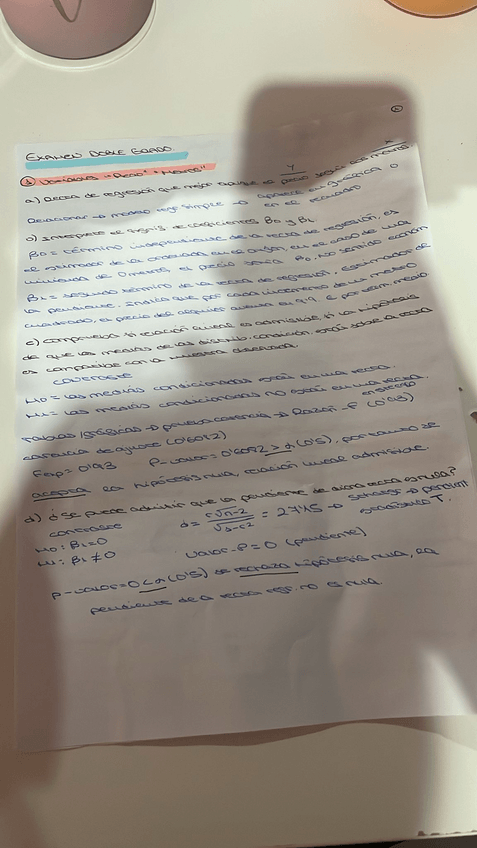 EXAMEN DOBLE GRADO
① VARIABLES "Precio" y "Metros"
Y X
a) Recta de regresión que mejor ajuste el precio según los metros
Relacionar → modelo reg. simple → aparece en gráfica o
en el ecuación
b) Interprete el signif. coeficientes B0 y B1
B0 = término independiente de la recta de regresión, es
el estimador de la ordenada en el origen, en el caso de una
vivienda de 0 metros, el precio sería B0, no sentido económ
B1 = segundo término de la recta de regresión, estimador de
la pendiente. Indica que por cada incremento de un metro
cuadrado, el precio del alquiler aumenta en 9'9 € por térm. medio.
c) comprueba si relación lineal es admisible, si la hipótesis
de que las medias de las distrib. condición. están sobre la recta
es compatible con la muestra observada.
CONTRASTE
H0 = las medias condicionadas están en una recta.
H1 = las medias condicionadas no están en una recta
Tablas/gráficas → prueba carencia → Razón-F (0'93)
carencia de ajuste (0'6092)
Fexp = 0'93 P-valor = 0'6092 > α (0'5), por tanto se
acepta la hipótesis nula, relación lineal admisible.
d) ¿Se puede admitir que la pendiente de dicha recta es nula?
contraste
H0: B1 = 0
H1: B1 ≠ 0
d = r√n-2 / √1-r2 = 27'45 → Statadv → pendient
estadístico T.
Valor-P = 0 (pendiente)
P-valor = 0 < α (0'5) se rechaza hipótesis nula, la
pendiente de la recta regr. no es nula.